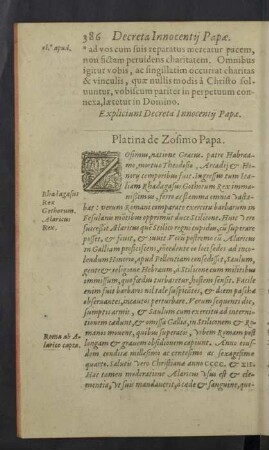 386 Decreta Innocentij Papæ.
el.* apud. * ad vos cum suis reparatus mereatur pacem,
non fictam peruidens charitatem. Omnibus
igitur vobis, ac singillatim occurrat charitas
& vinculis, quæ nullis modis à Christo sol-
uuntur, vobiscum pariter in perpetuum con-
nexa, lætetur in Domino.
Expliciunt Decreta Innocentij Papa.
Platina de Zosimo Papa.
Zosimus, natione Græcus, patre Habraa-
mo, moritur Theodosij, Arcadij & Ho-
norij temporibus fuit. Ingressus tum Ita-
liam Rhadagasus Gothorum Rex imma-
nissimus, ferro ac flamma omnia vasta-
Rhadagasus
Rex
Gothorum.
Alaricus
Rex.
bat: verum Romani comparato exercitu barbarum in
Fesulano montibus opprimit duce Stilicone. Huic vero
successit Alaricus quē Stilico
posset, & fouit, & iuuit. Verū postremò cū Alarico
in Galliam proficiscente, concedente eo loci sedes ad reco-
lendum Honorio, apud Pollentiam consedisset, Saulum,
gente & religione Hebraum, à Stilicone cum militibus
immissum, quo fœdus turbaretur, hostem sensit. Facile
enim fuit barbaros nil tale suspicātes, & diem paschæ
obseruantes, incautos perturbare. Verum sequenti die,
sumptis armis, & Saulum cum exercitu ad interne-
cionem cædunt, & omissa Gallia, in Stiliconem & Ro-
Roma ab A-
larico capta.
manos mouent, quibus superatis, vrbem Romam post
longam & grauem obsidionem capiunt, Anno eius-
dem condita millesimo ac centesimo ac sexagesimo
quarto, Salutis verò Christianæ anno CCCC. & XII.
Hac tamen moderatione Alaricus vsus est & cle-
mentia, vt suis mandauerit, à cæde & sanguine, qua-